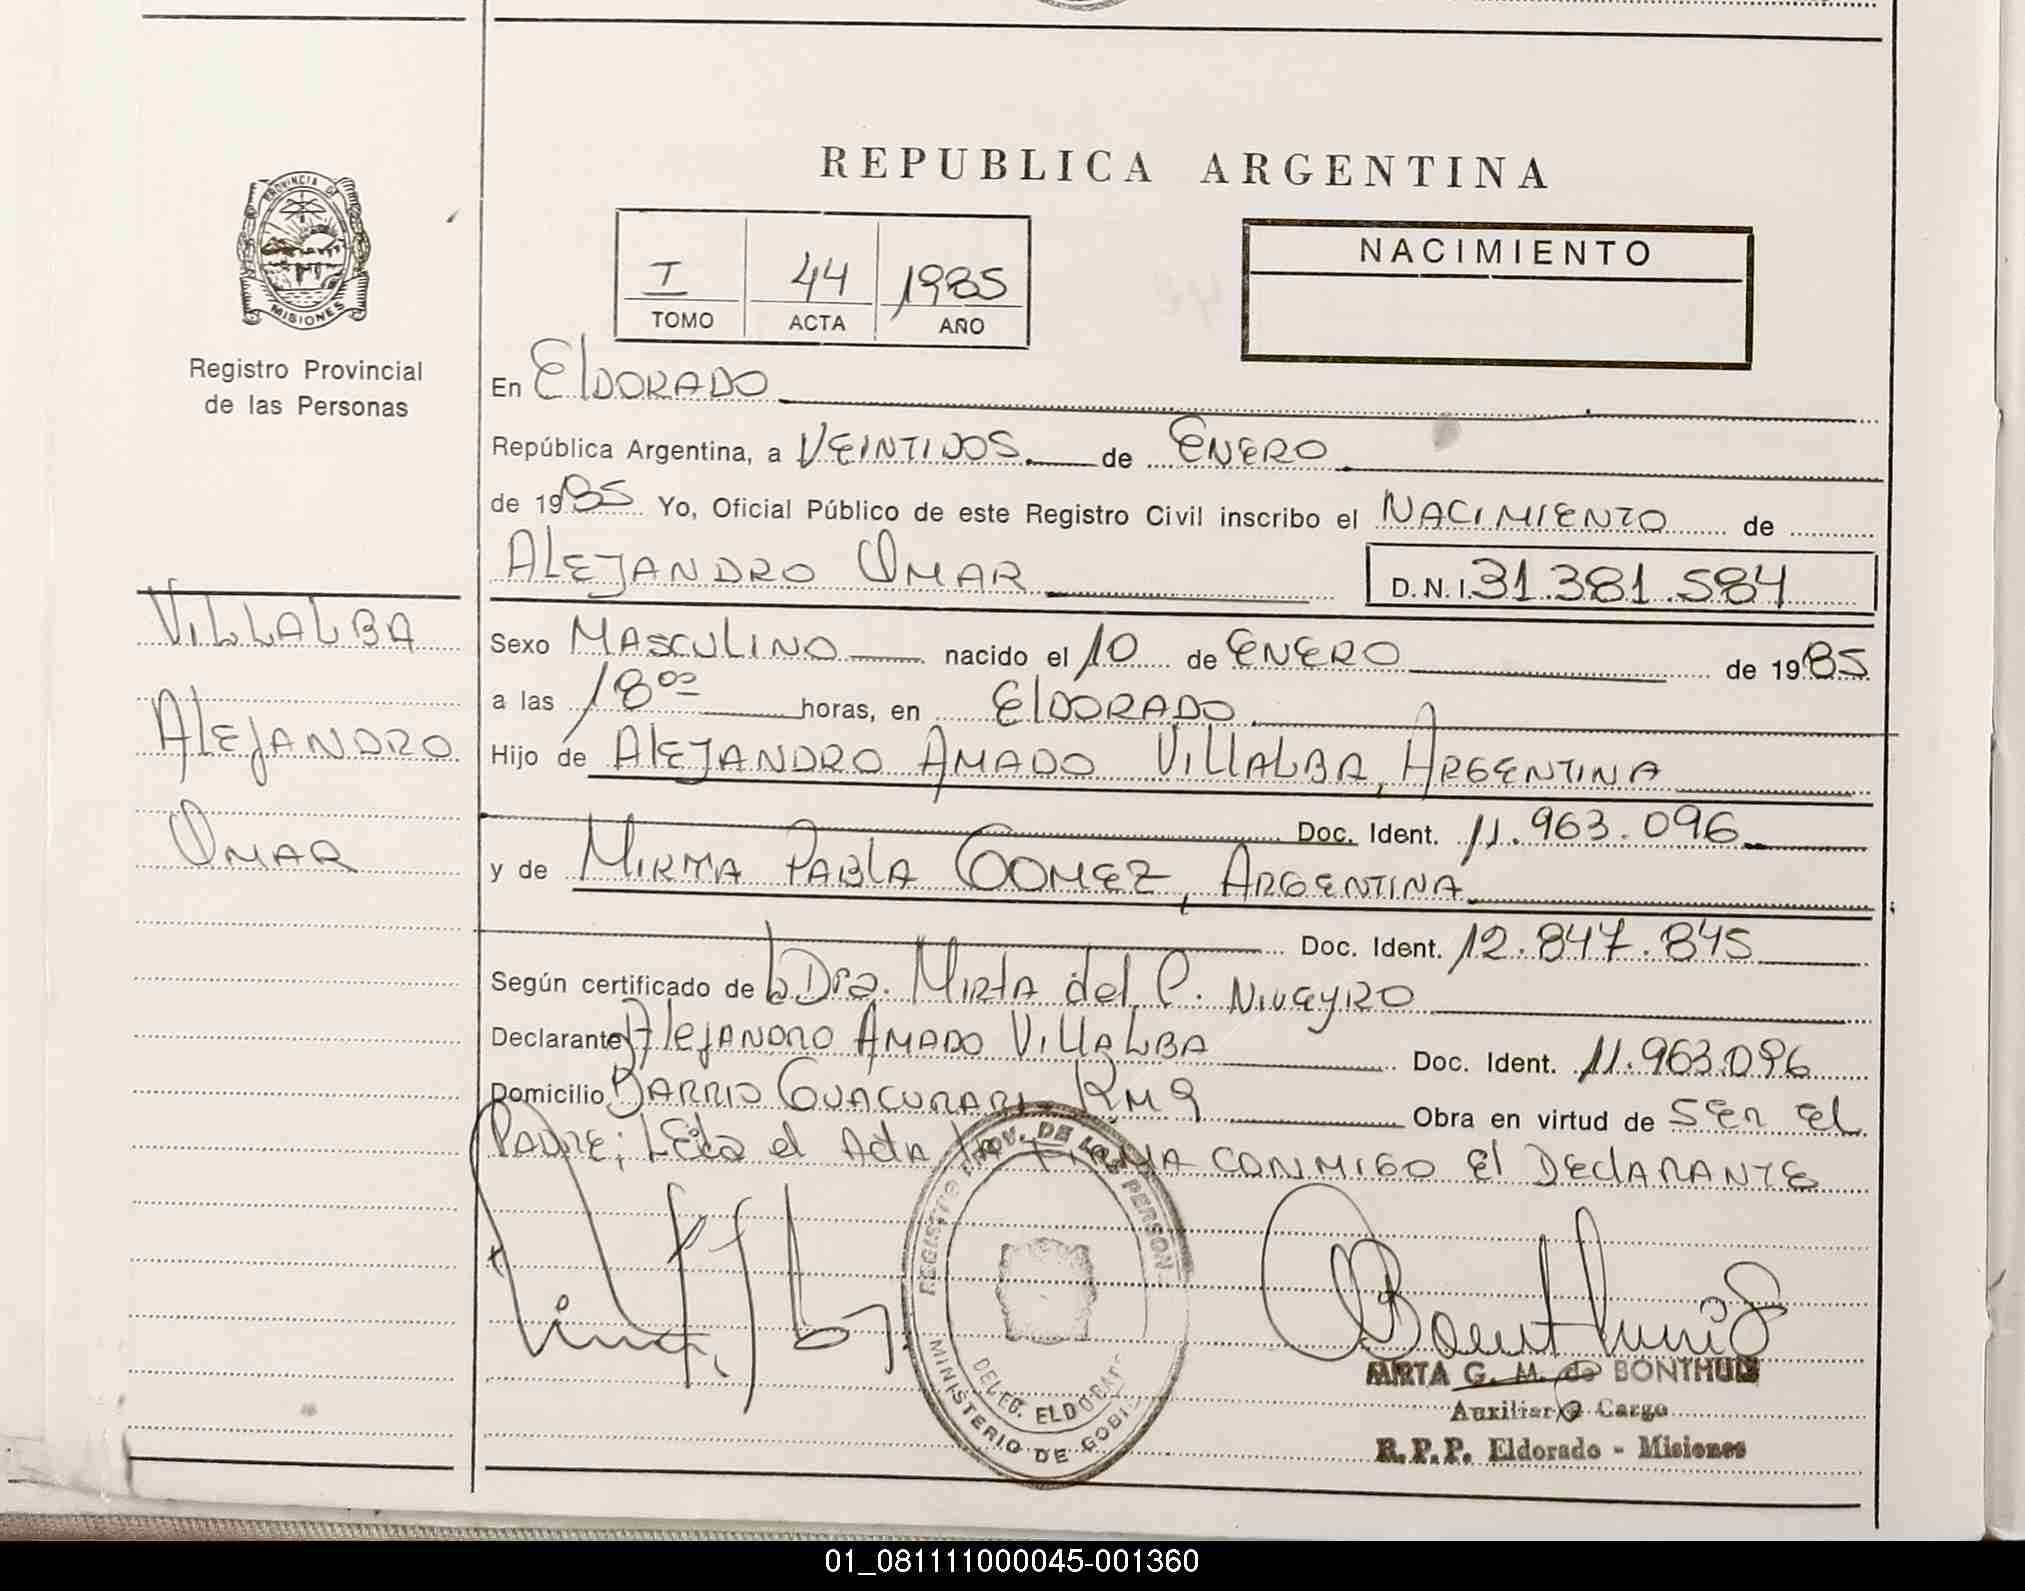 REPUBLICA ARGENTINA
PROVINCIA DE
MISIONES
Registro Provincial
de las Personas
I 44 1985
TOMO ACTA AÑO
NACIMIENTO
En ElDORADO
República Argentina, a VEINTIDOS de ENERO
de 1985 Yo, Oficial Público de este Registro Civil inscribo el NACIMIENTO de
ALEJANDRO OMAR D.N.I. 31.381.584
VILLALBA
ALEJANDRO
OMAR
Sexo MASCULINO nacido el 10 de ENERO de 1985
a las 18 00 horas, en ElDORADO
Hijo de AlEJANDRO AMADO VillALBA, ARGENTINA
Doc. Ident. 11.963.096
y de MIRTA PABlA GOMEZ, ARGENTINA
Doc. Ident. 12.847.845
Según certificado de la Dra. MIRTA del C. NIVEYRO
Declarante AlejANDRO AMADO VillALBA Doc. Ident. 11.963.096
Domicilio BARRIO GUACURARI KM 9 Obra en virtud de SER El
PADRE; LEIDA el Acta la FIRMA CONMIGO El DEClARANTE
REGISTRO PROV. DE LAS PERSON
DELEG. ELDORADO
MINISTERIO DE GOBI
MIRTA G. M. de BONTHUIS
Auxiliar a Cargo
R.P.P. Eldorado - Misiones
01_081111000045-001360